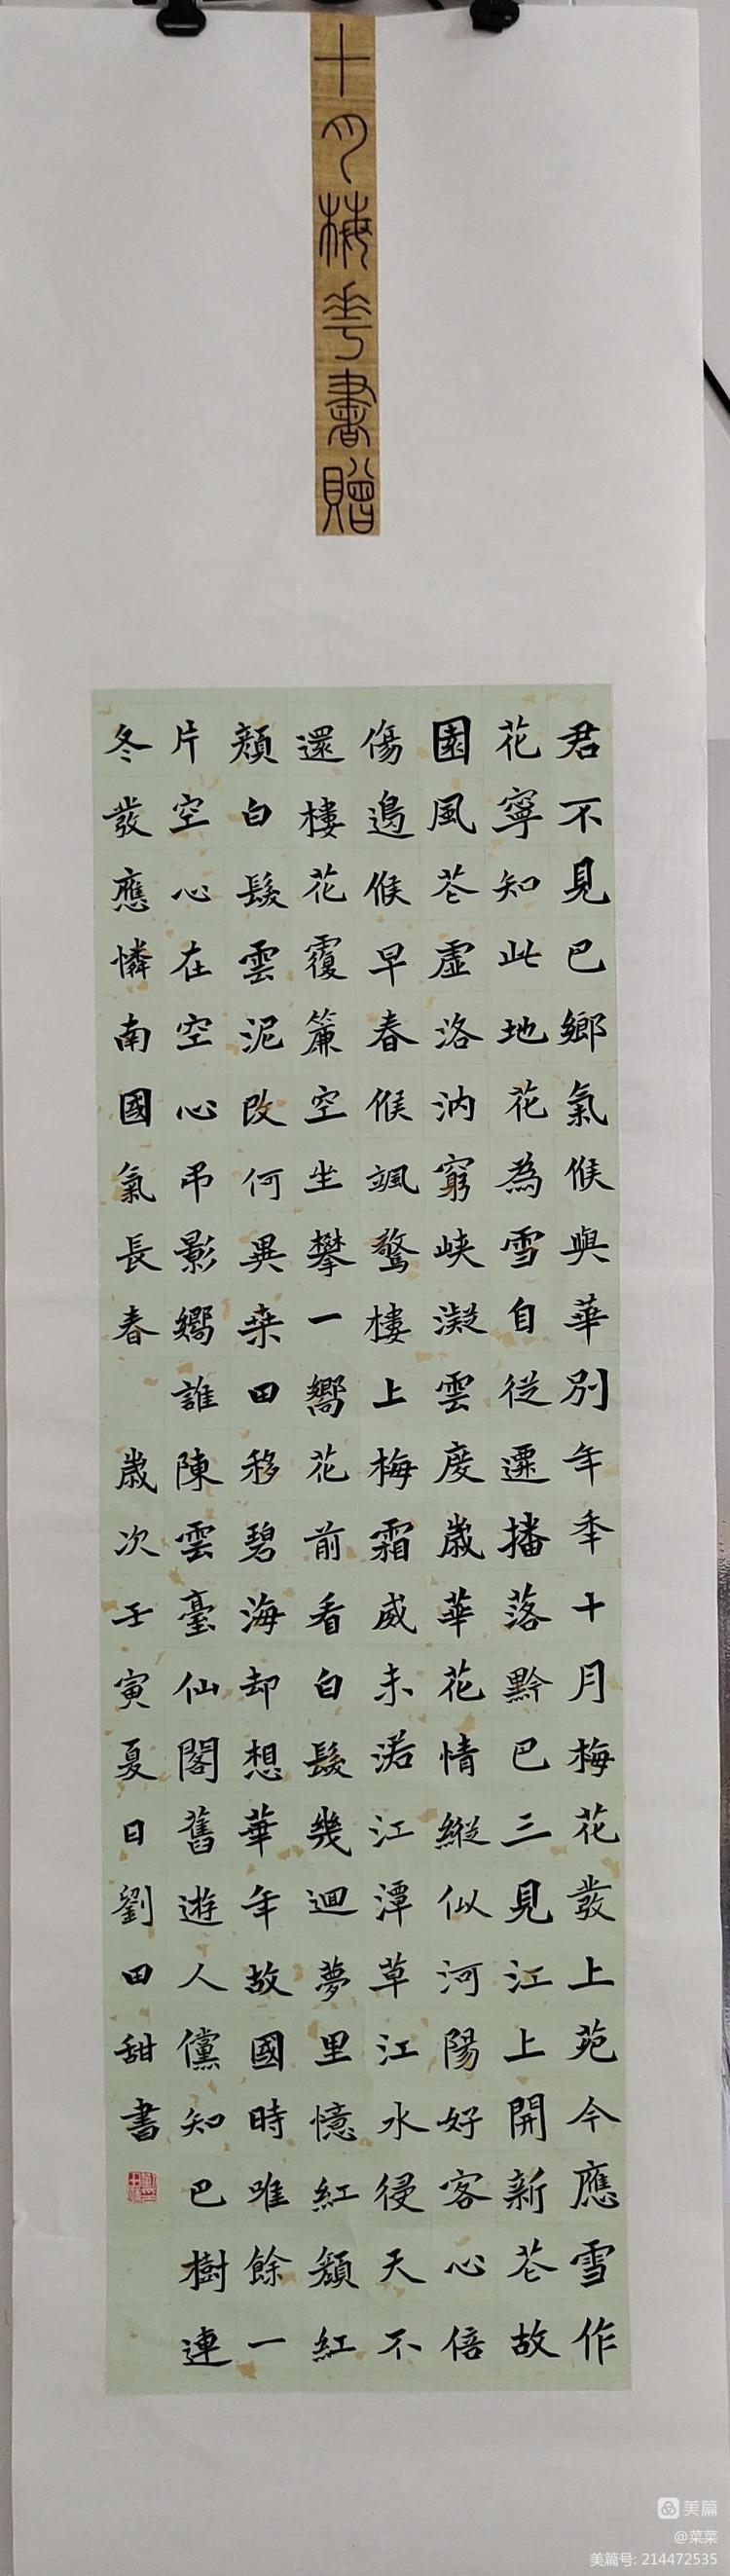 十月梅花書贈
君不見巴鄉氣候與華別年年十月梅花發上苑今應雪作
花寧知此地花為雪自從遷播落黔巴三見江上開新花故
園風花虛洛汭窮峽凝雲度歲華花情縱似河陽好客心倍
傷邊候早春候颯驚樓上梅霜威未落江潭草江水侵天不
還樓花覆簾空坐攀一嚮花前看白髮幾迴夢里憶紅顏紅
顏白髮雲泥改何異桒田移碧海却想華年故國時唯餘一
片空心在空心弔影嚮誰陳雲臺仙閣舊遊人儻知巴樹連
冬發應憐南國氣長春
歲次壬寅夏日劉田甜書
美篇
@菜菜
美篇号: 214472535